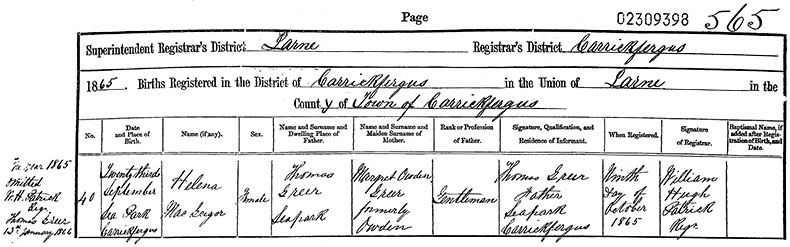 Page 02309398 565
Superintendent Registrar's District, Larne Registrar's District, Carrickfergus
1865. Births Registered in the District of Carrickfergus in the Union of Larne in the
County of Town of Carrickfergus
No. Date and Place of Birth. Name (if any). Sex. Name and Surname and Dwelling Place of Father. Name and Surname and Maiden Surname of Mother. Rank or Profession of Father. Signature, Qualification, and Residence of Informant. When Registered. Signature of Registrar. Baptismal Name, if added after Registration of Birth, and Date.
Year 1865
omitted
W. H. Patrick
Regr.
Thomas Greer
13th January 1866
40
Twenty third
September
Sea Park
Carrickfergus
Helena
MacGregor
Female
Thomas
Greer
Seapark
Margret Owden
Greer
formerly
Owden
Gentleman
Thomas Greer
Father
Seapark
Carrickfergus
Ninth
day of
October
1865
William
Hugh
Patrick
Regr.